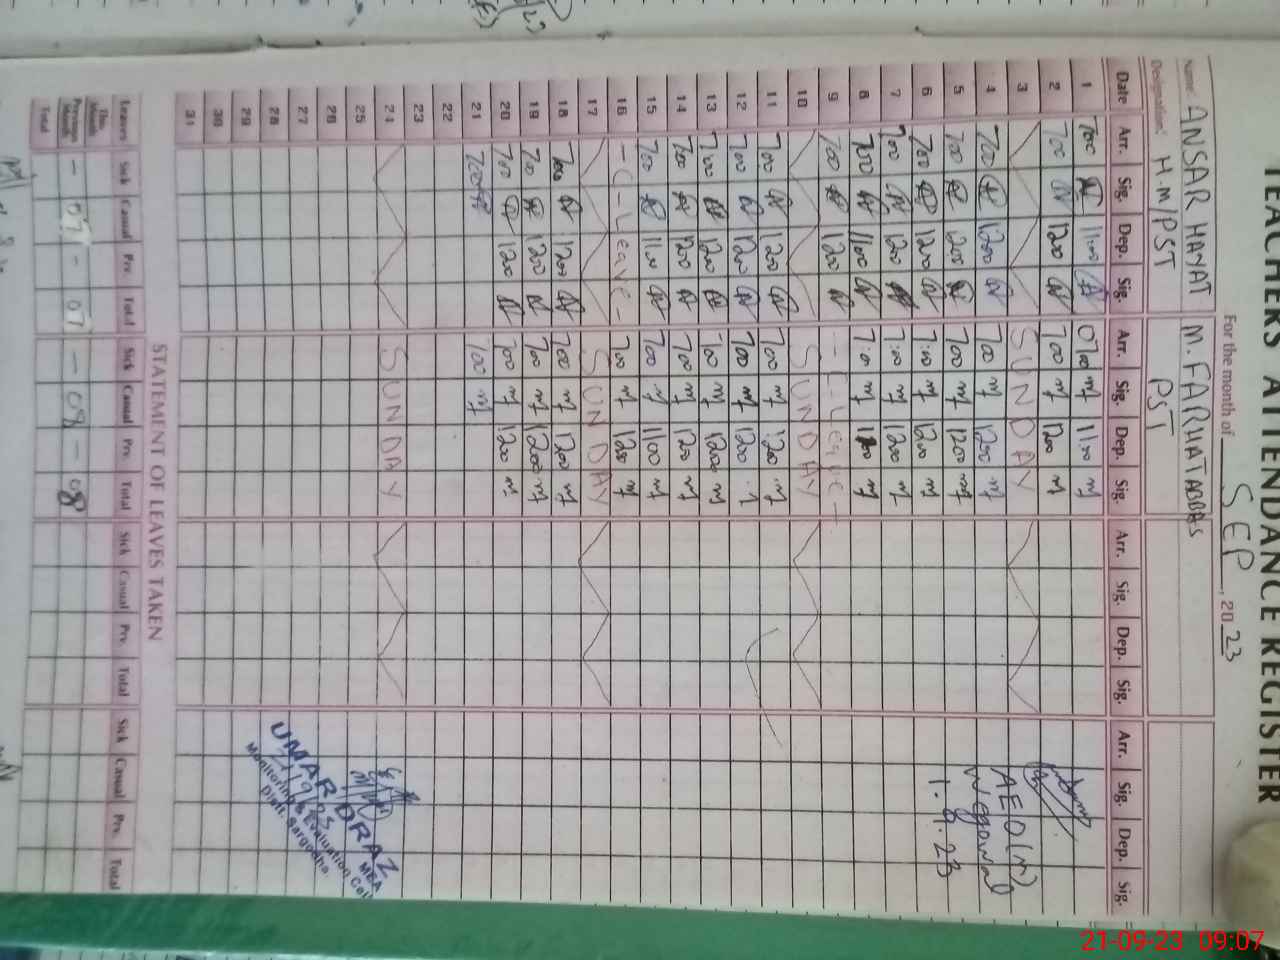 TEACHERS ATTENDANCE REGISTER
For the month of SEP, 2023
Name: ANSAR HAYAT M. FARHAT ABBAS
Designation: H.M/PST PST
Date Arr. Sig. Dep. Sig. Arr. Sig. Dep. Sig. Arr. Sig. Dep. Sig. Arr. Sig. Dep. Sig.
1 700 1100 0700 1100
2 700 1200 700 1200
3 SUNDAY
4 700 1200 700 1200 AEO(M)
5 700 1200 700 1200
6 700 1200 7:00 1200
7 700 1200 7:00 1200
8 700 1100 7:00 1100
9 700 1200 - C - Leave -
10 SUNDAY
11 700 1200 700 1200
12 700 1200 700 1200
13 700 1200 700 1200
14 700 1200 700 1200
15 700 1100 700 1100
16 - C - Leave - 700 1200
17 SUNDAY
18 700 1200 700 1200
19 700 1200 700 1200
20 700 1200 700 1200
21 700 700
22
23
24 SUNDAY
25
26
27
28
29
30
31
UMAR DRAZ
MEA
Monitoring & Evaluation Cell
Distt. Sargodha
STATEMENT OF LEAVES TAKEN
Leaves Sick Casual Prv. Total Sick Casual Prv. Total Sick Casual Prv. Total Sick Casual Prv. Total
This Month
Previous Month - 07 - 07 - 08 - 08
Total
21-09-23 09:07